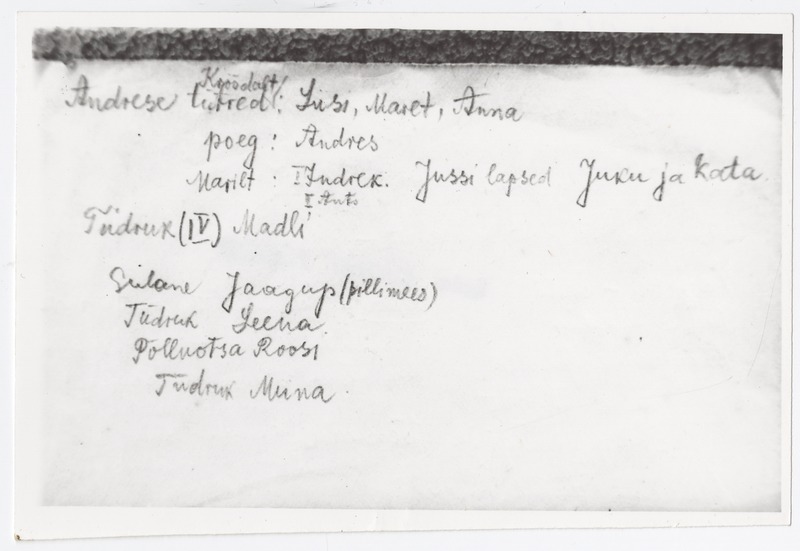 Krõõdalt
Andrese tütred: Liisi, Maret, Anna
poeg: Andres
Marilt: I Indrek. Jussi lapsed Juku ja Kata.
II Ants
Tüdruk (IV) Madli
Sulane Jaagup (pillimees)
Tüdruk Leena.
Pollnotsa Roosi
Tüdruk Miina.